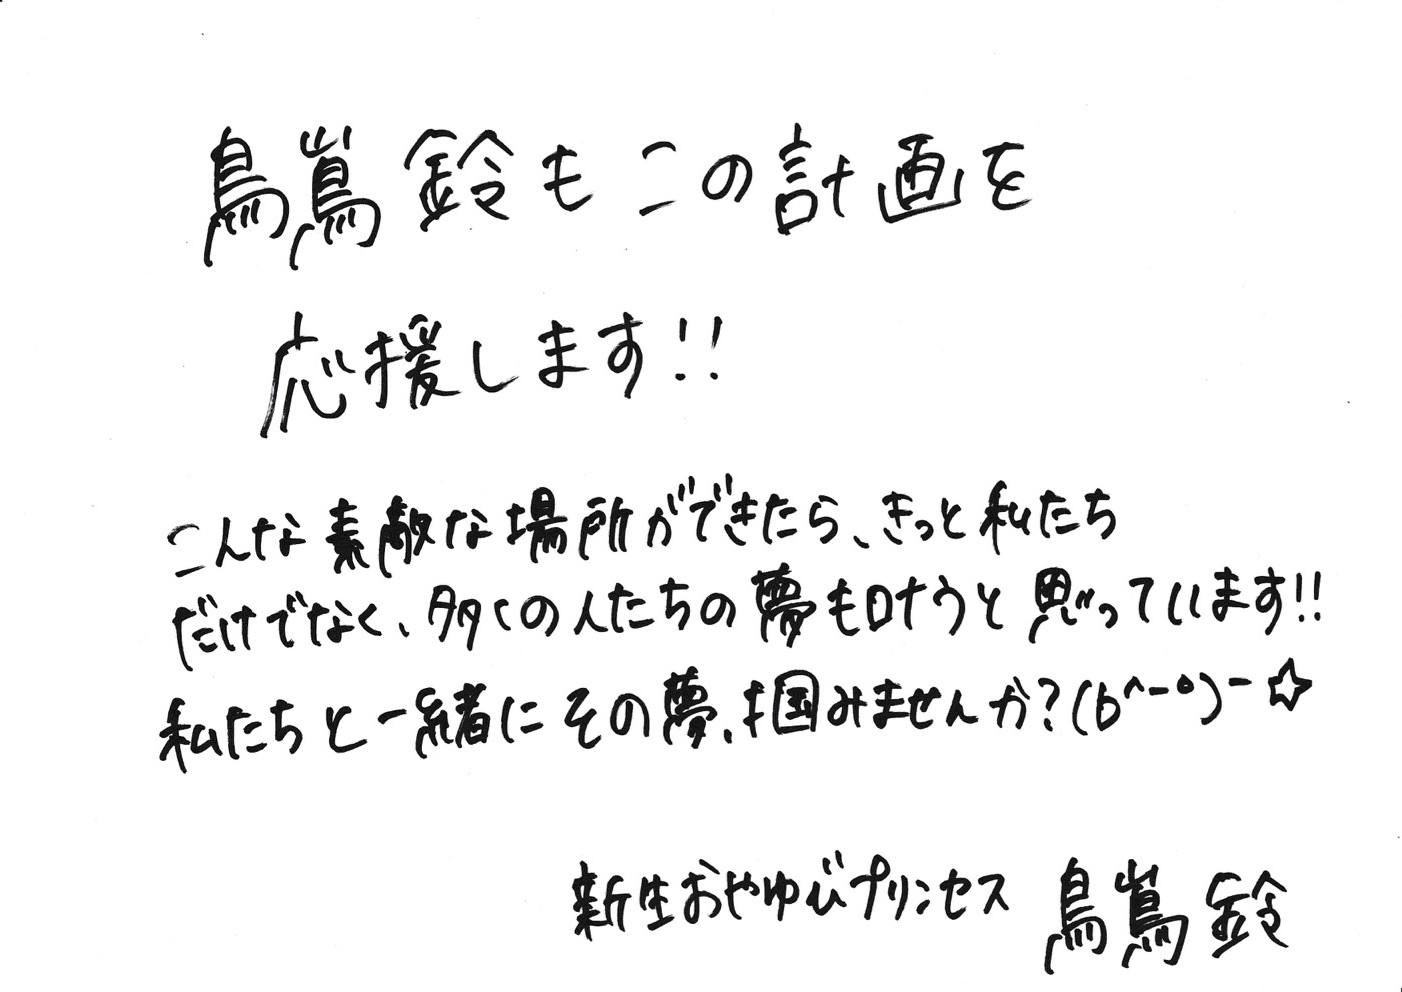 鳥嶌 鈴もこの計画を
応援します!!
こんな素敵な場所ができたら、きっと私たち
だけでなく、多くの人たちの夢も叶うと思っています!!
私たちと一緒にその夢、掴みませんか?(b^-°)-☆
新生おやゆびプリンセス 鳥嶌 鈴